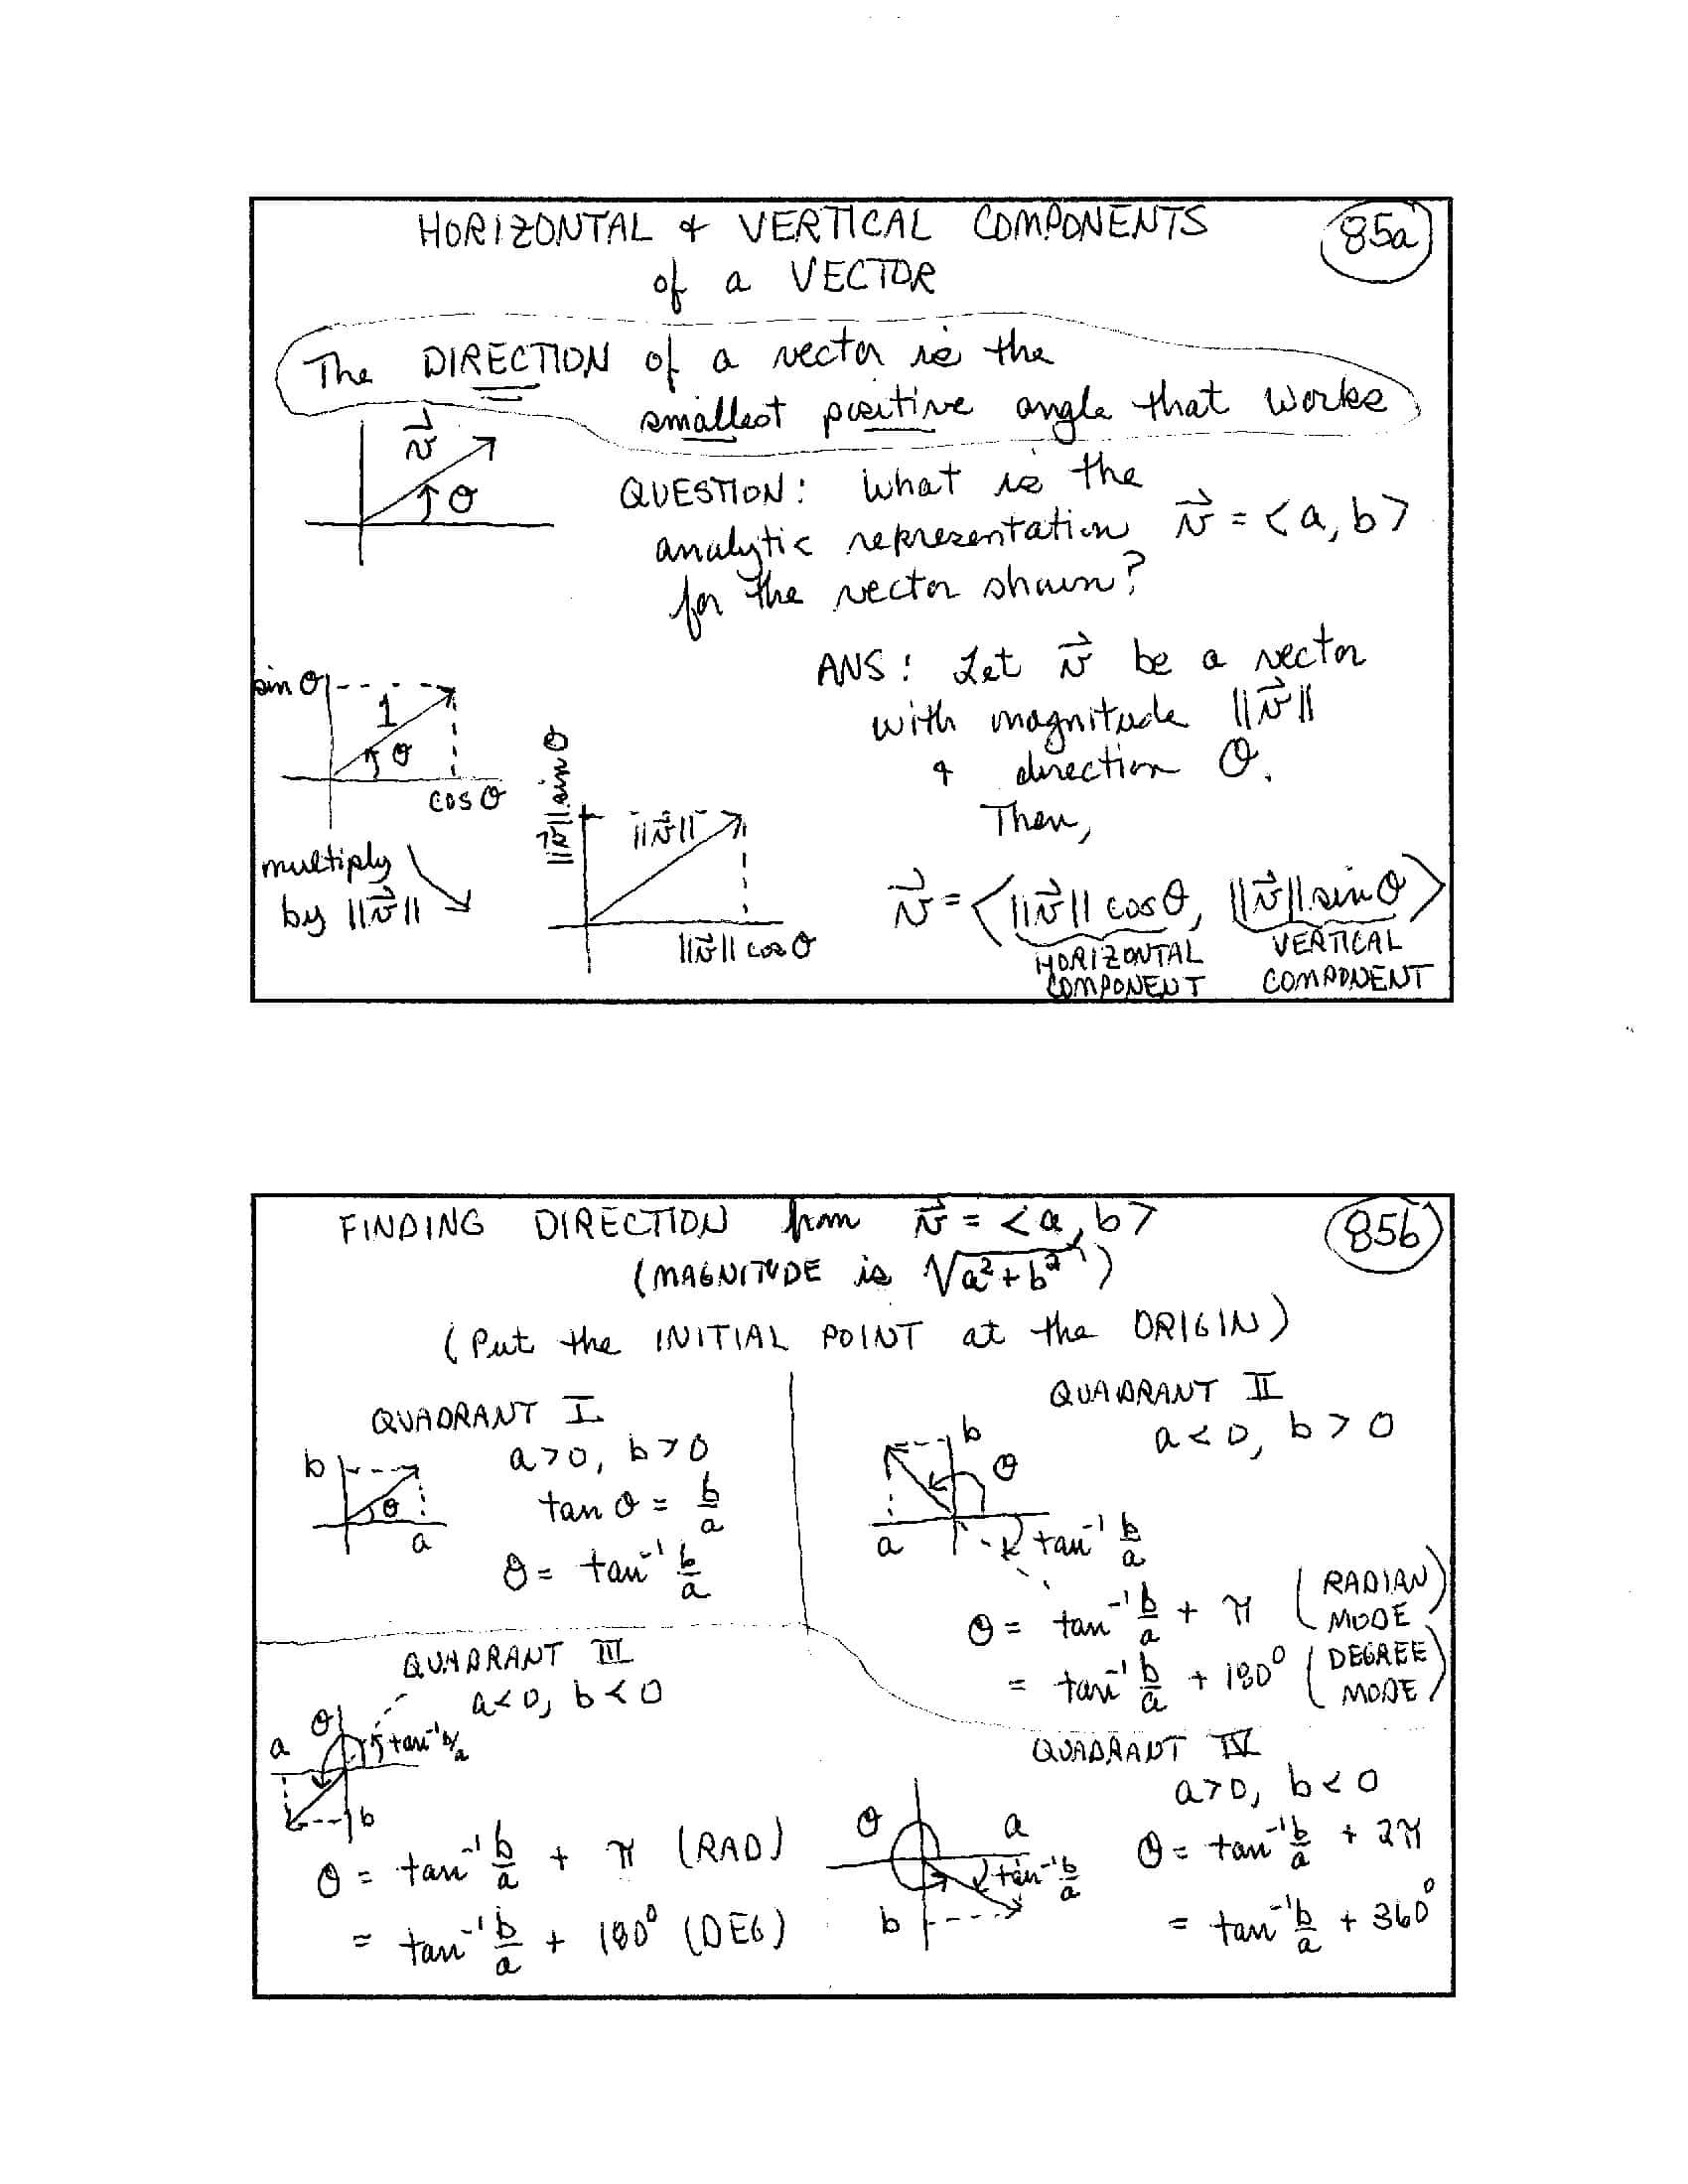 HORIZONTAL & VERTICAL COMPONENTS
of a VECTOR
85a
The DIRECTION of a vector is the
smallest positive angle that works
v⃗
θ
QUESTION: What is the
analytic representation v⃗ = <a, b>
for the vector shown?
ANS: Let v⃗ be a vector
with magnitude ||v⃗||
& direction θ.
Then,
v⃗ = <||v⃗|| cosθ, ||v⃗|| sinθ>
HORIZONTAL COMPONENT
VERTICAL COMPONENT
sin θ
1
θ
cos θ
multiply
by ||v⃗||
||v⃗|| sin θ
||v⃗||
||v⃗|| cos θ
FINDING DIRECTION from v⃗ = <a, b>
85b
(MAGNITUDE is √(a²+b²))
(Put the INITIAL POINT at the ORIGIN)
QUADRANT I
a>0, b>0
b
θ
a
tan θ = b/a
θ = tan⁻¹ b/a
QUADRANT II
a<0, b>0
b
θ
a
tan⁻¹ b/a
θ = tan⁻¹ b/a + π (RADIAN MODE)
= tan⁻¹ b/a + 180° (DEGREE MODE)
QUADRANT III
a<0, b<0
θ
a
tan⁻¹ b/a
b
θ = tan⁻¹ b/a + π (RAD)
= tan⁻¹ b/a + 180° (DEG)
QUADRANT IV
a>0, b<0
θ
a
tan⁻¹ b/a
b
θ = tan⁻¹ b/a + 2π
= tan⁻¹ b/a + 360°